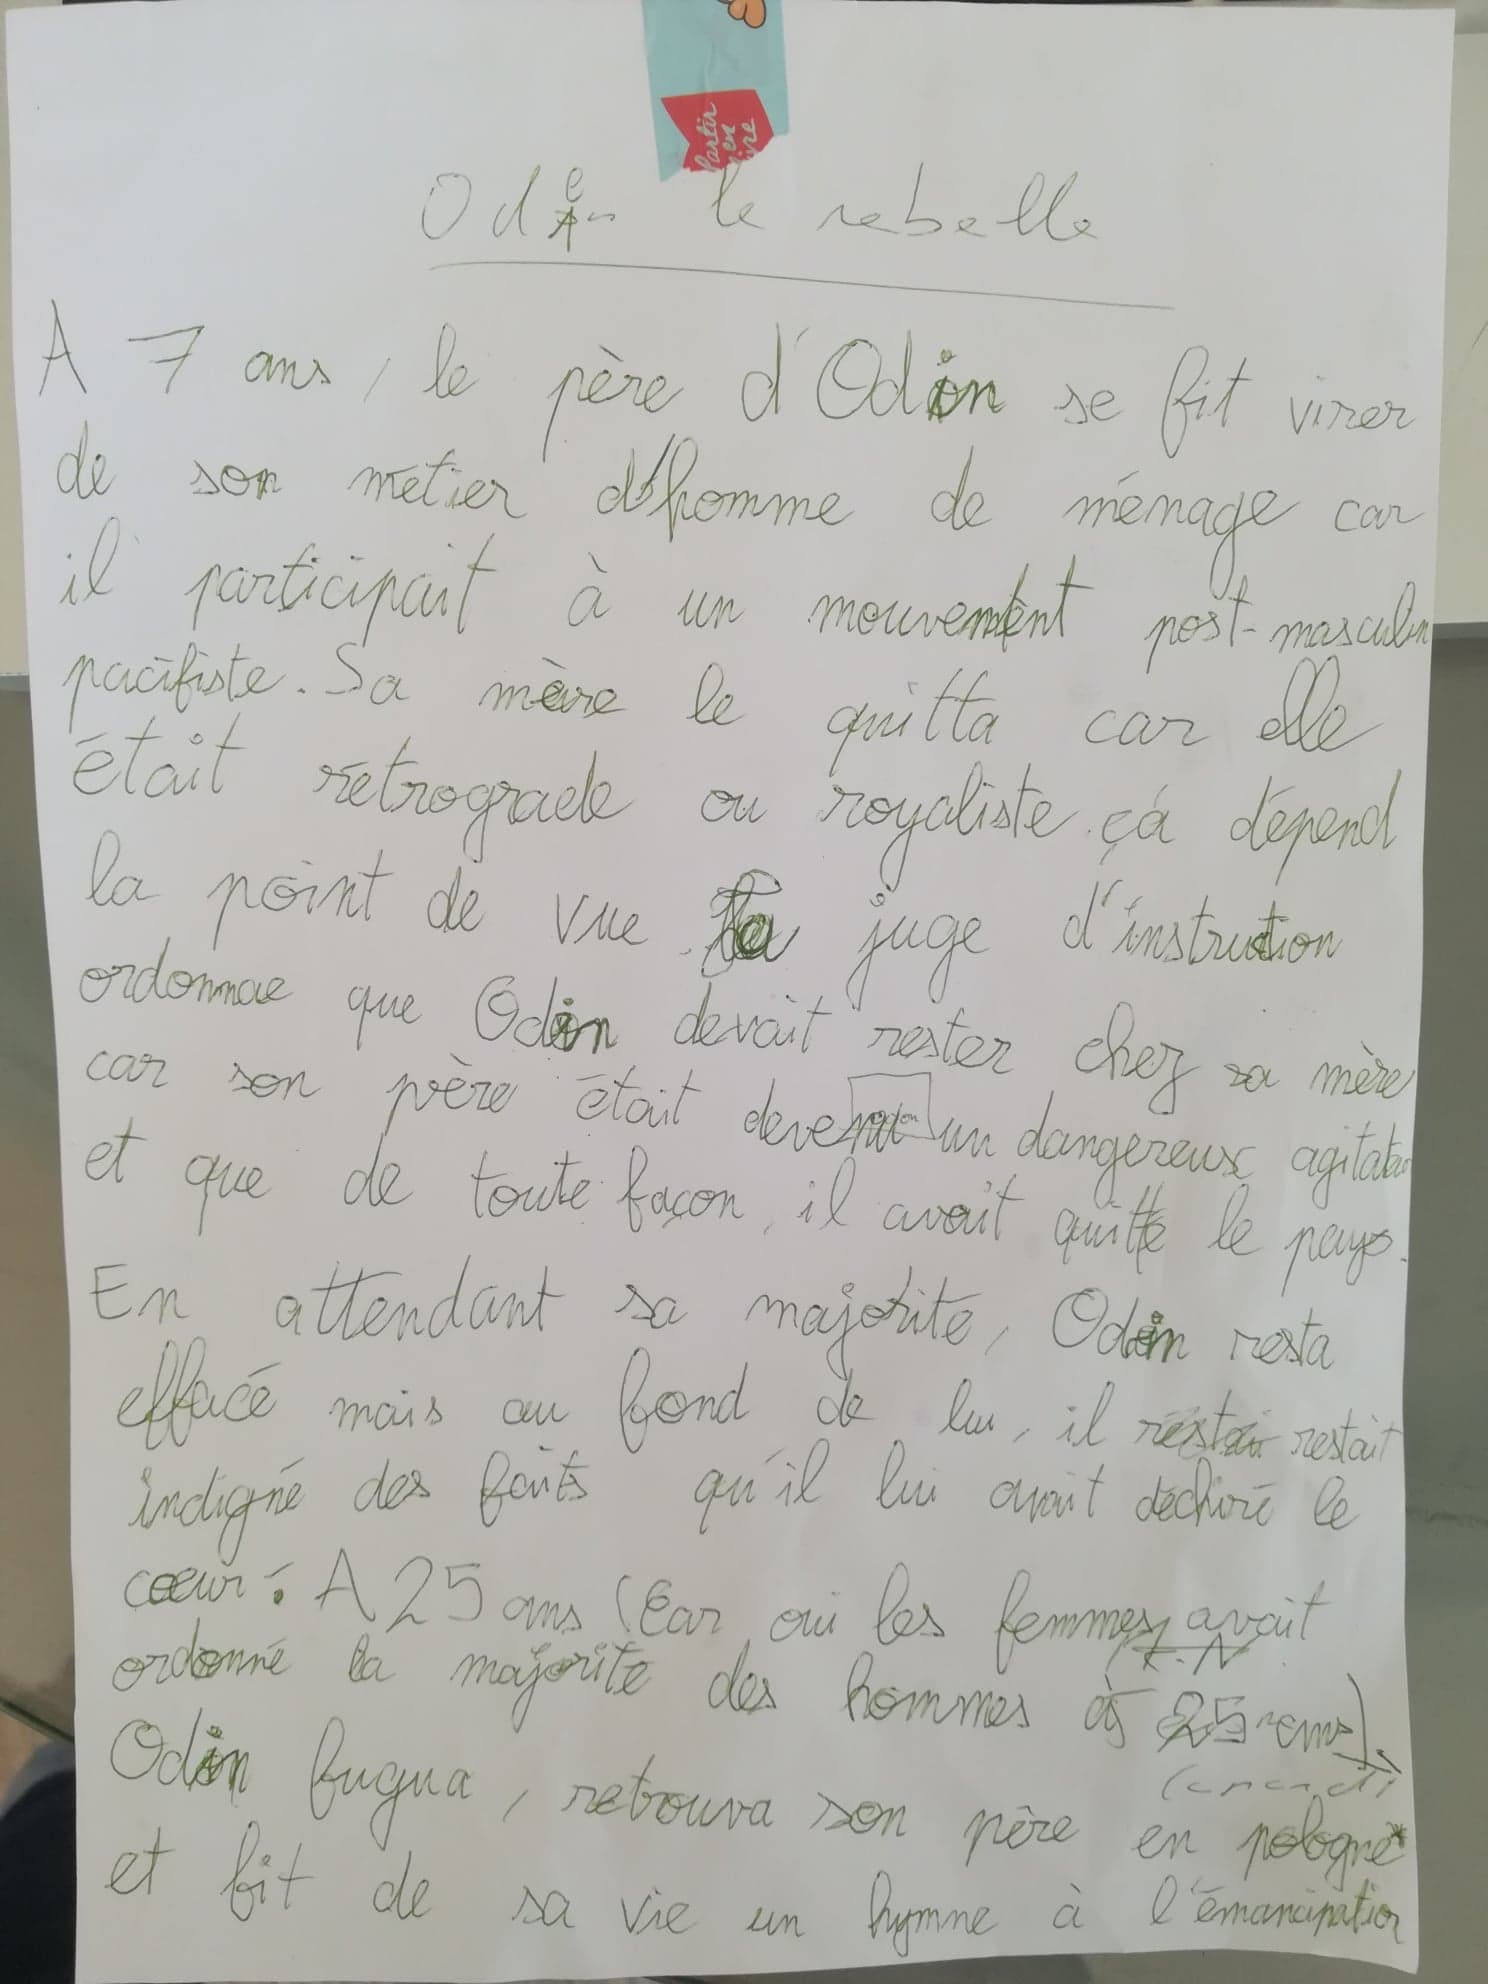 Partir
en
le rebelle
A 7 ans, le père d'Odin se fit virer
de son métier d'homme de ménage car
il participait à un mouvement post-masculin
pacifiste. Sa mère le quitta car elle
était rétrograde ou royaliste çá dépend
la point de vue. La juge d'instruction
ordonnae que Odin devait rester chez sa mère
car son père était devenu un dangereux agitateur
et que de toute façon, il avait quitté le pays.
En attendant sa majorité, Odin resta
effacé mais au fond de lui, il restait
indigné des faits qu'il lui avait déchiré le
cœur. A 25 ans (Car oui les femmes avait
ordonné la majorité des hommes à 25 ans).
Odin fugua, retrouva son père en pologne*
et fit de sa vie un hymne à l'émancipation